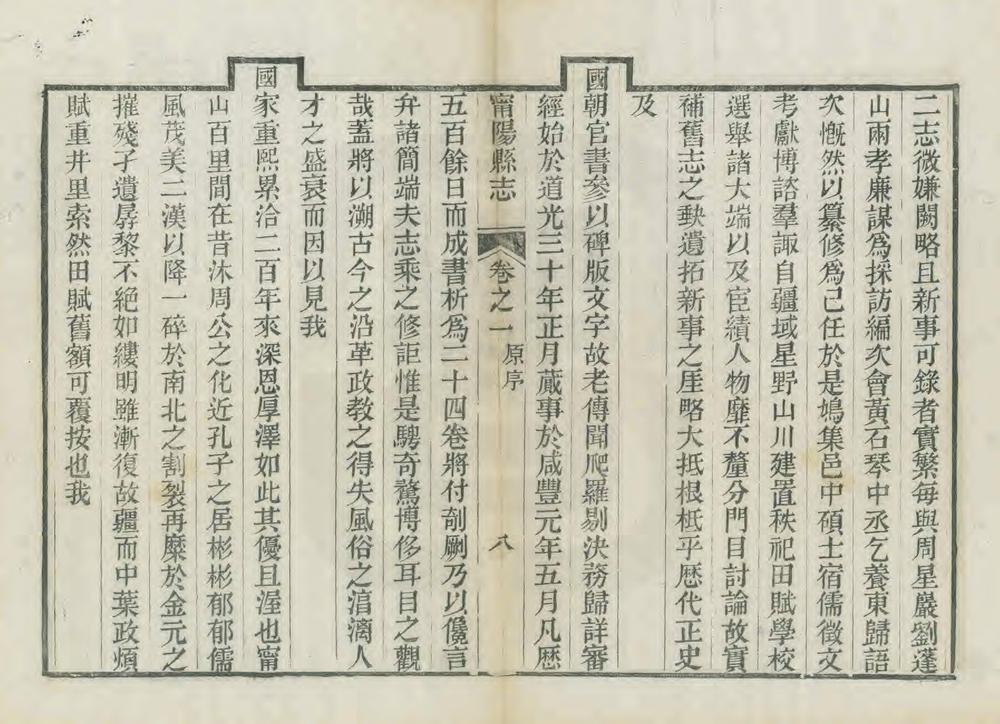 二志微嫌闕略且新事可錄者實繁每與周星巖劉蓬
山兩孝廉謀爲採訪編次會黃石琴中丞乞養東歸語
次慨然以纂修爲己任於是鳩集邑中碩士宿儒徵文
考獻博諮羣諏自疆域星野山川建置秩祀田賦學校
選舉諸大端以及宦績人物靡不釐分門目討論故實
補舊志之缺遺拓新事之厓略大抵根柢乎歷代正史
及
國朝官書參以碑版文字故老傳聞爬羅剔決務歸詳審
經始於道光三十年正月蕆事於咸豐元年五月凡歷
甯陽縣志 卷之一 原序 八
五百餘日而成書析爲二十四卷將付剞劂乃以儳言
弁諸簡端夫志乘之修詎惟是騁奇驚博侈耳目之觀
哉蓋將以溯古今之沿革政教之得失風俗之湻漓人
才之盛衰而因以見我
國家重熙累洽二百年來深恩厚澤如此其優且渥也甯
山百里間在昔沐周公之化近孔子之居彬彬郁郁儒
風茂美二漢以降一碎於南北之割裂再糜於金元之
摧殘孑遺孱黎不絕如縷明雖漸復故疆而中葉政煩
賦重井里索然田賦舊額可覆按也我